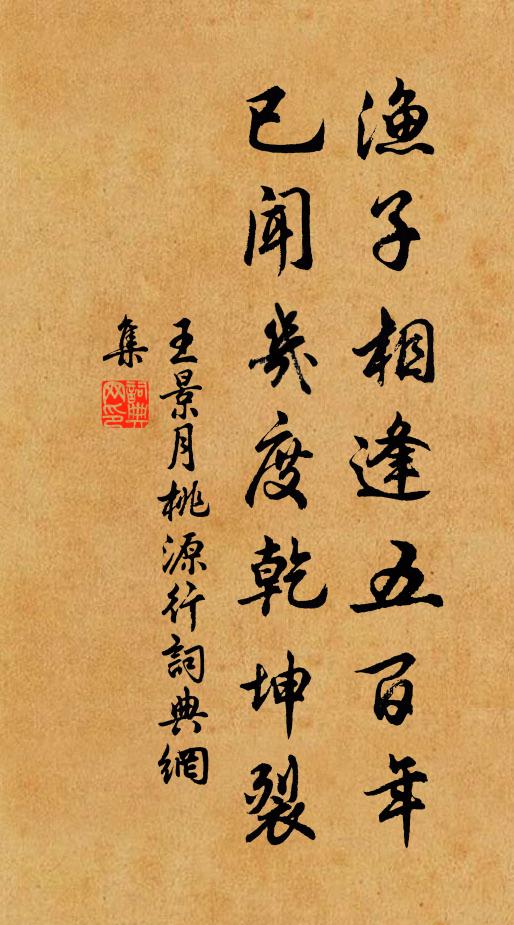 漁子相逢五百年
已聞幾度乾坤裂
王景月桃源行詞典網
集
詞典網印